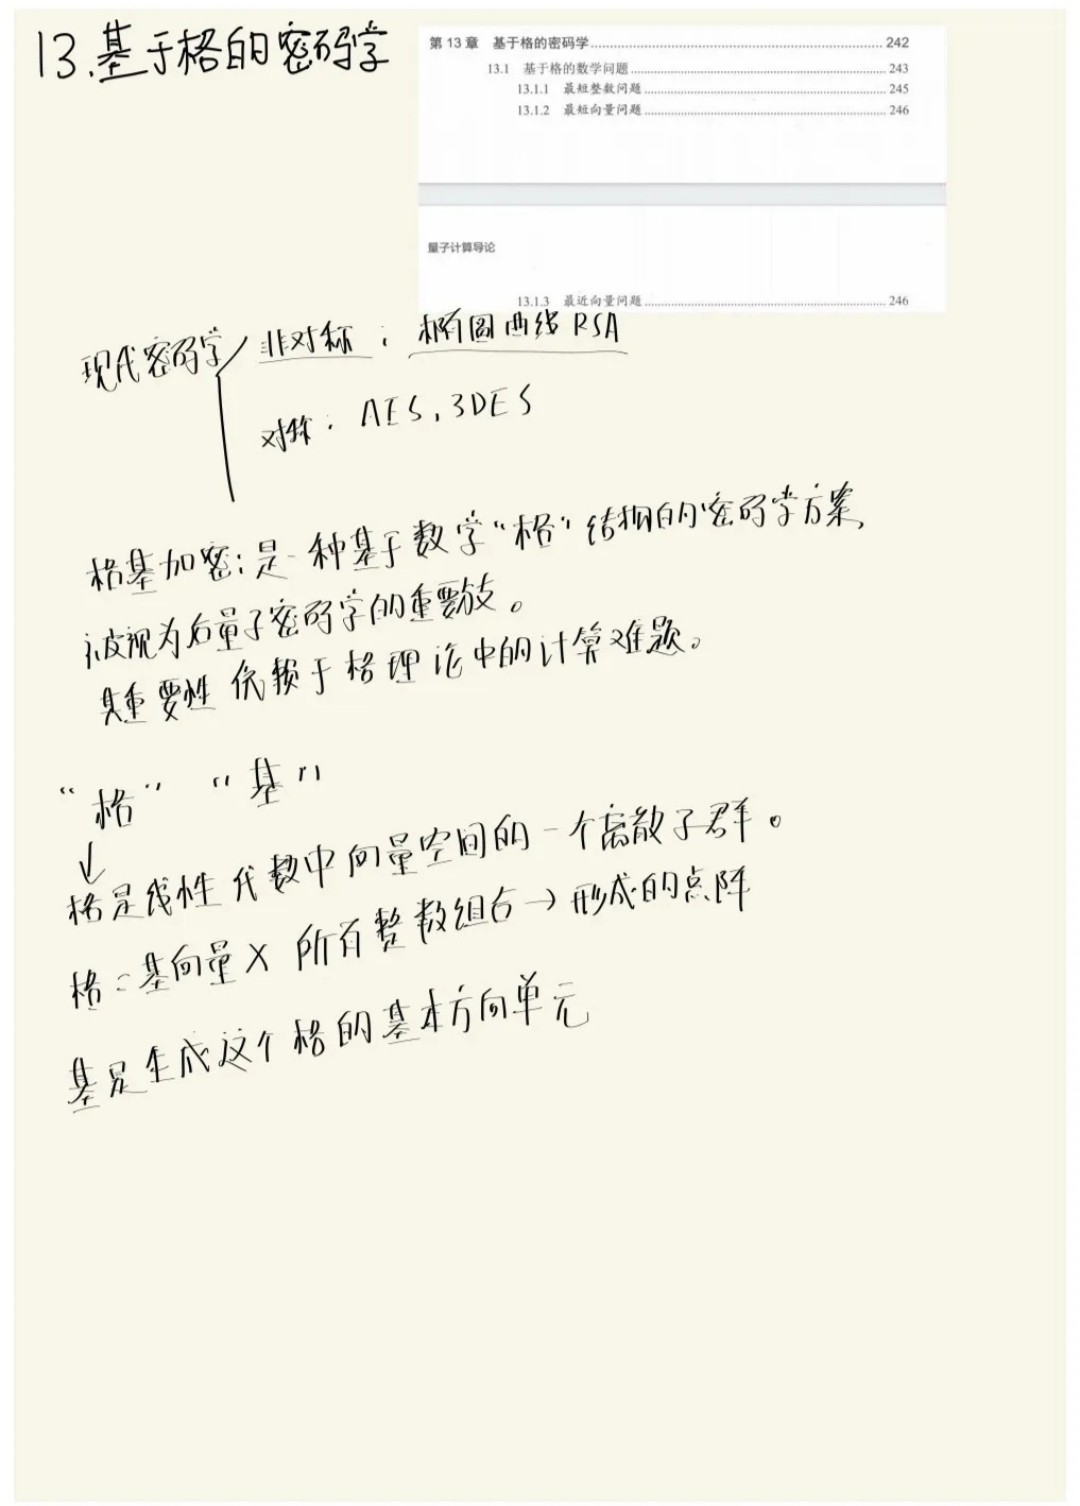 13.基于格的密码学
第 13 章 基于格的密码学 242
13.1 基于格的数学问题 243
13.1.1 最短整数问题 245
13.1.2 最短向量问题 246
量子计算导论
13.1.3 最近向量问题 246
现代密码学 非对称：椭圆曲线 RSA
对称：AES,3DES
格基加密:是一种基于数学“格”结构的密码学方案,
被视为后量子密码学的重要分支。
其重要性依赖于格理论中的计算难题。
“格” “基”
↓
格是线性代数中向量空间的一个离散子群。
格=基向量×所有整数组合→形成的点阵
基是生成这个格的基本方向单元